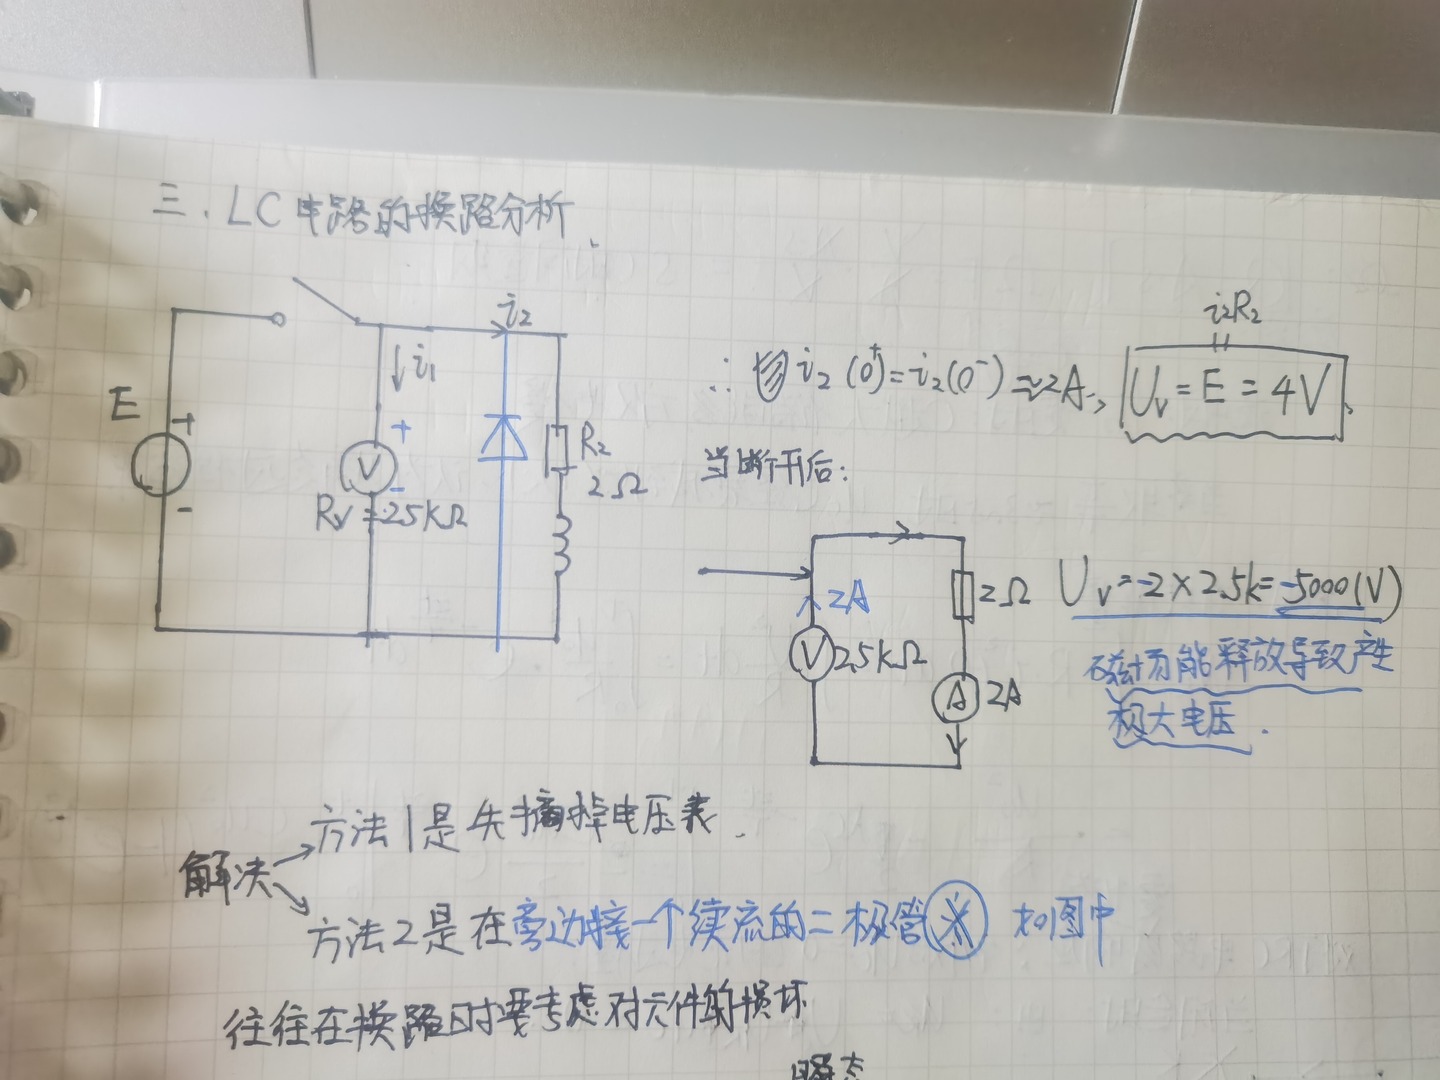 三.LC电路的换路分析.
i₂
i₁
E
+
-
+
V
-
Rᵥ=2.5kΩ
R₂
2Ω
i₂R₂
∴ i₂(0⁺)=i₂(0⁻)≈2A, Uᵥ=E=4V
当断开后:
2A
V 2.5kΩ
2Ω
A 2A
Uᵥ=-2×2.5k=-5000(V)
磁场能释放导致产生
极大电压.
解决
方法1是先摘掉电压表.
方法2是在旁边接一个续流的二极管※ 如图中
往往在换路时要考虑对元件的损坏
瞬态